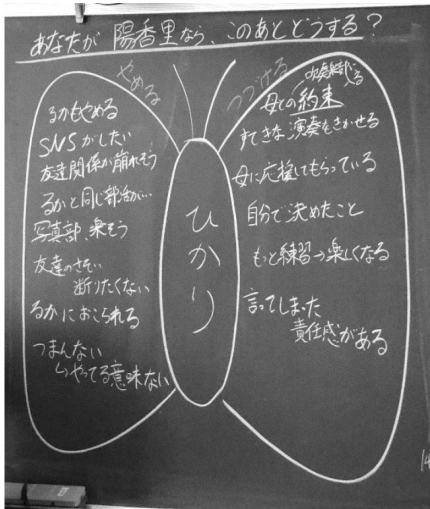 あなたが 陽香里なら、このあとどうする?
やめる
るかもやめる
SNSがしたい
友達関係が崩れそう
るかと同じ部活が…
写真部、楽そう
友達のさそい
断りたくない
るかにおこられる
つまんない
↳やってる意味ない
ひかり
つづける
母との約束
すてきな演奏をきかせる
母に応援してもらっている
自分で決めたこと
もっと練習→楽しくなる
言ってしまった
責任感がある